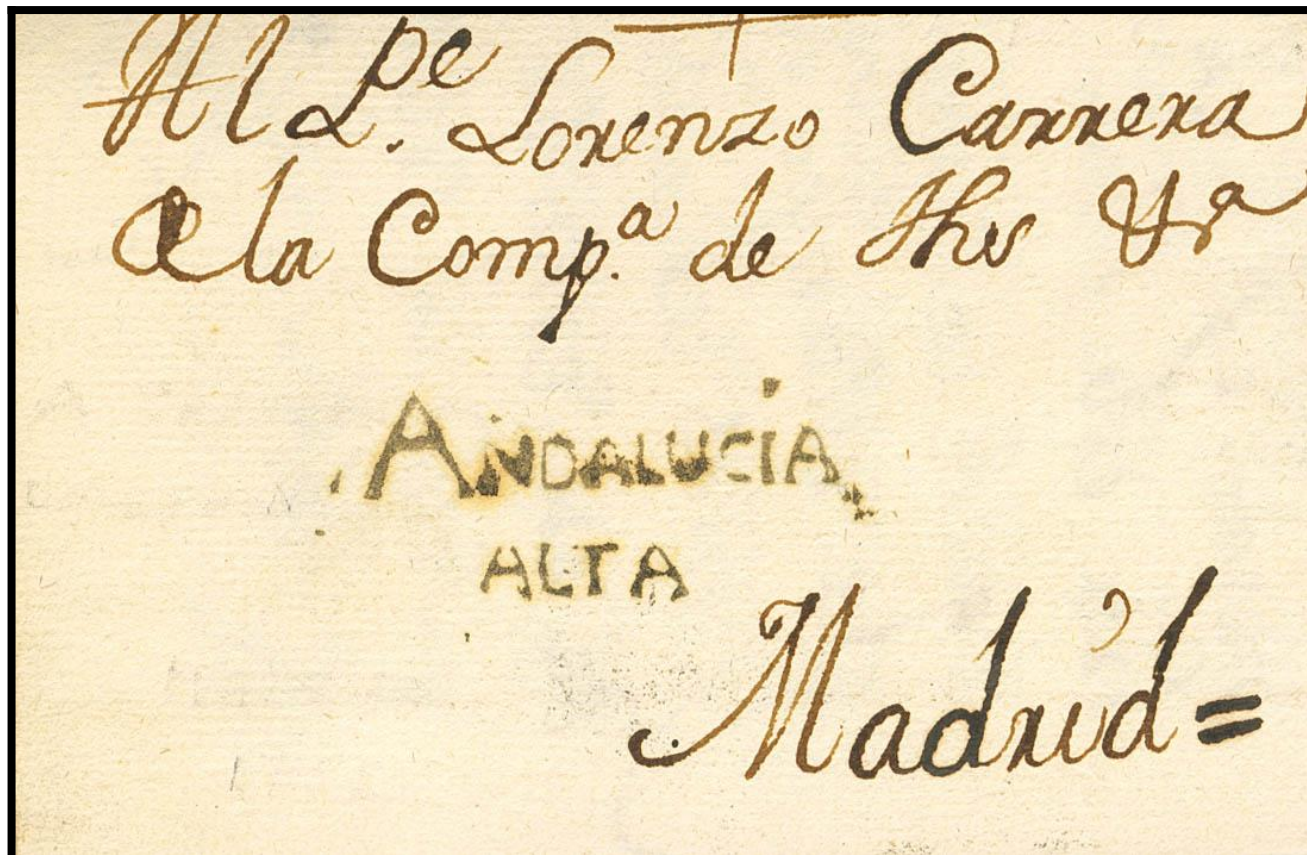 Al P.e Lorenzo Carrera
de la Comp.a de Jhs
ANDALUCÍA
ALTA
Madrid=